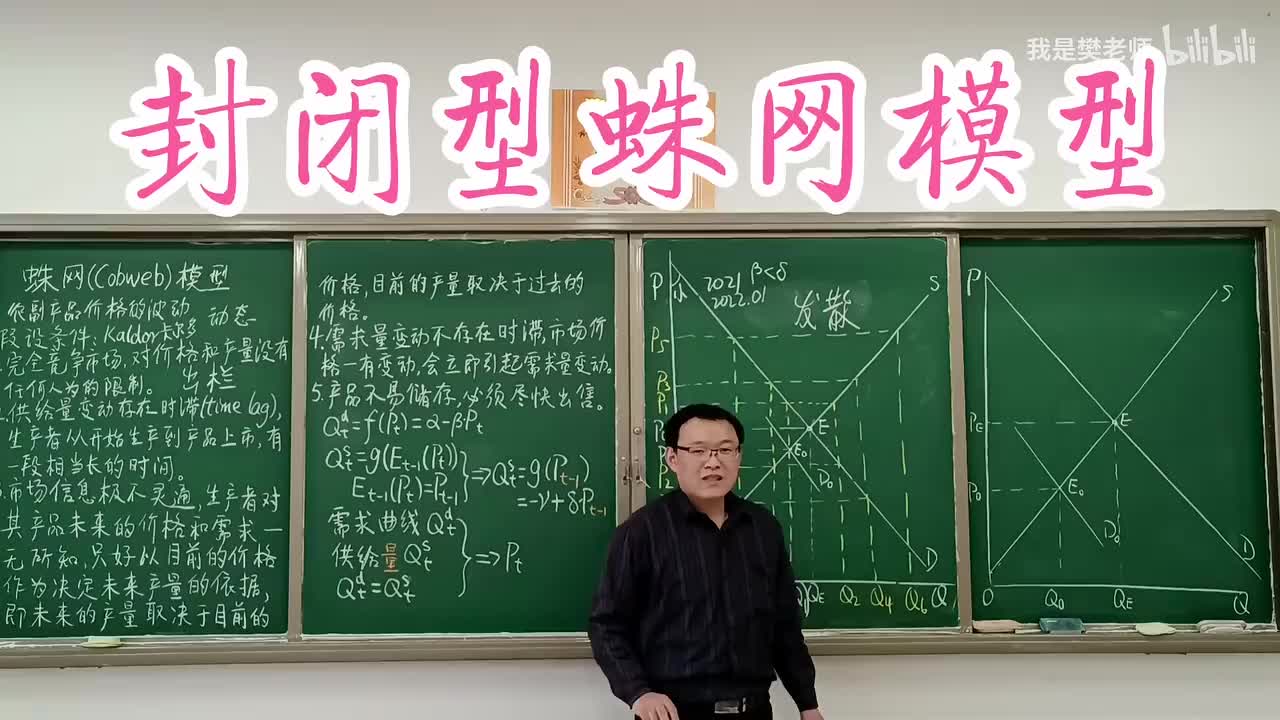 我是樊老师 bilibili
封闭型蛛网模型
蛛网(Cobweb)模型
农副产品价格的波动
假设条件:Kaldor卡尔多 动态
完全竞争市场,对价格和产量没有
任何人为的限制。 出栏
供给量变动存在时滞(time lag),
生产者从开始生产到产品上市,有
一段相当长的时间。
市场信息极不灵通,生产者对
其产品未来的价格和需求一
无所知,只好以目前的价格
作为决定未来产量的依据,
即未来的产量取决于目前的
价格,目前的产量取决于过去的
价格。
4.需求量变动不存在时滞,市场价
格一有变动,会立即引起需求量变动。
5.产品不易储存,必须尽快出售。
Qᵈₜ=f(Pₜ)=α-βPₜ
Qˢₜ=g(Eₜ₋₁(Pₜ))
Eₜ₋₁(Pₜ)=Pₜ₋₁
⇒Qˢₜ=g(Pₜ₋₁)
=-γ+δPₜ₋₁
需求曲线 Qᵈₜ
供给量 Qˢₜ
Qᵈₜ=Qˢₜ
⇒Pₜ
P
2021 β<δ
2022.01
发散
S
P₅
P₃
P₁
P₂
E
E₀
D₀
D
Q₁ Q_E Q₂ Q₄ Q₆ Q
P
S
P_E
E
P₀
E₀
D₀
D
O Q₀ Q_E Q